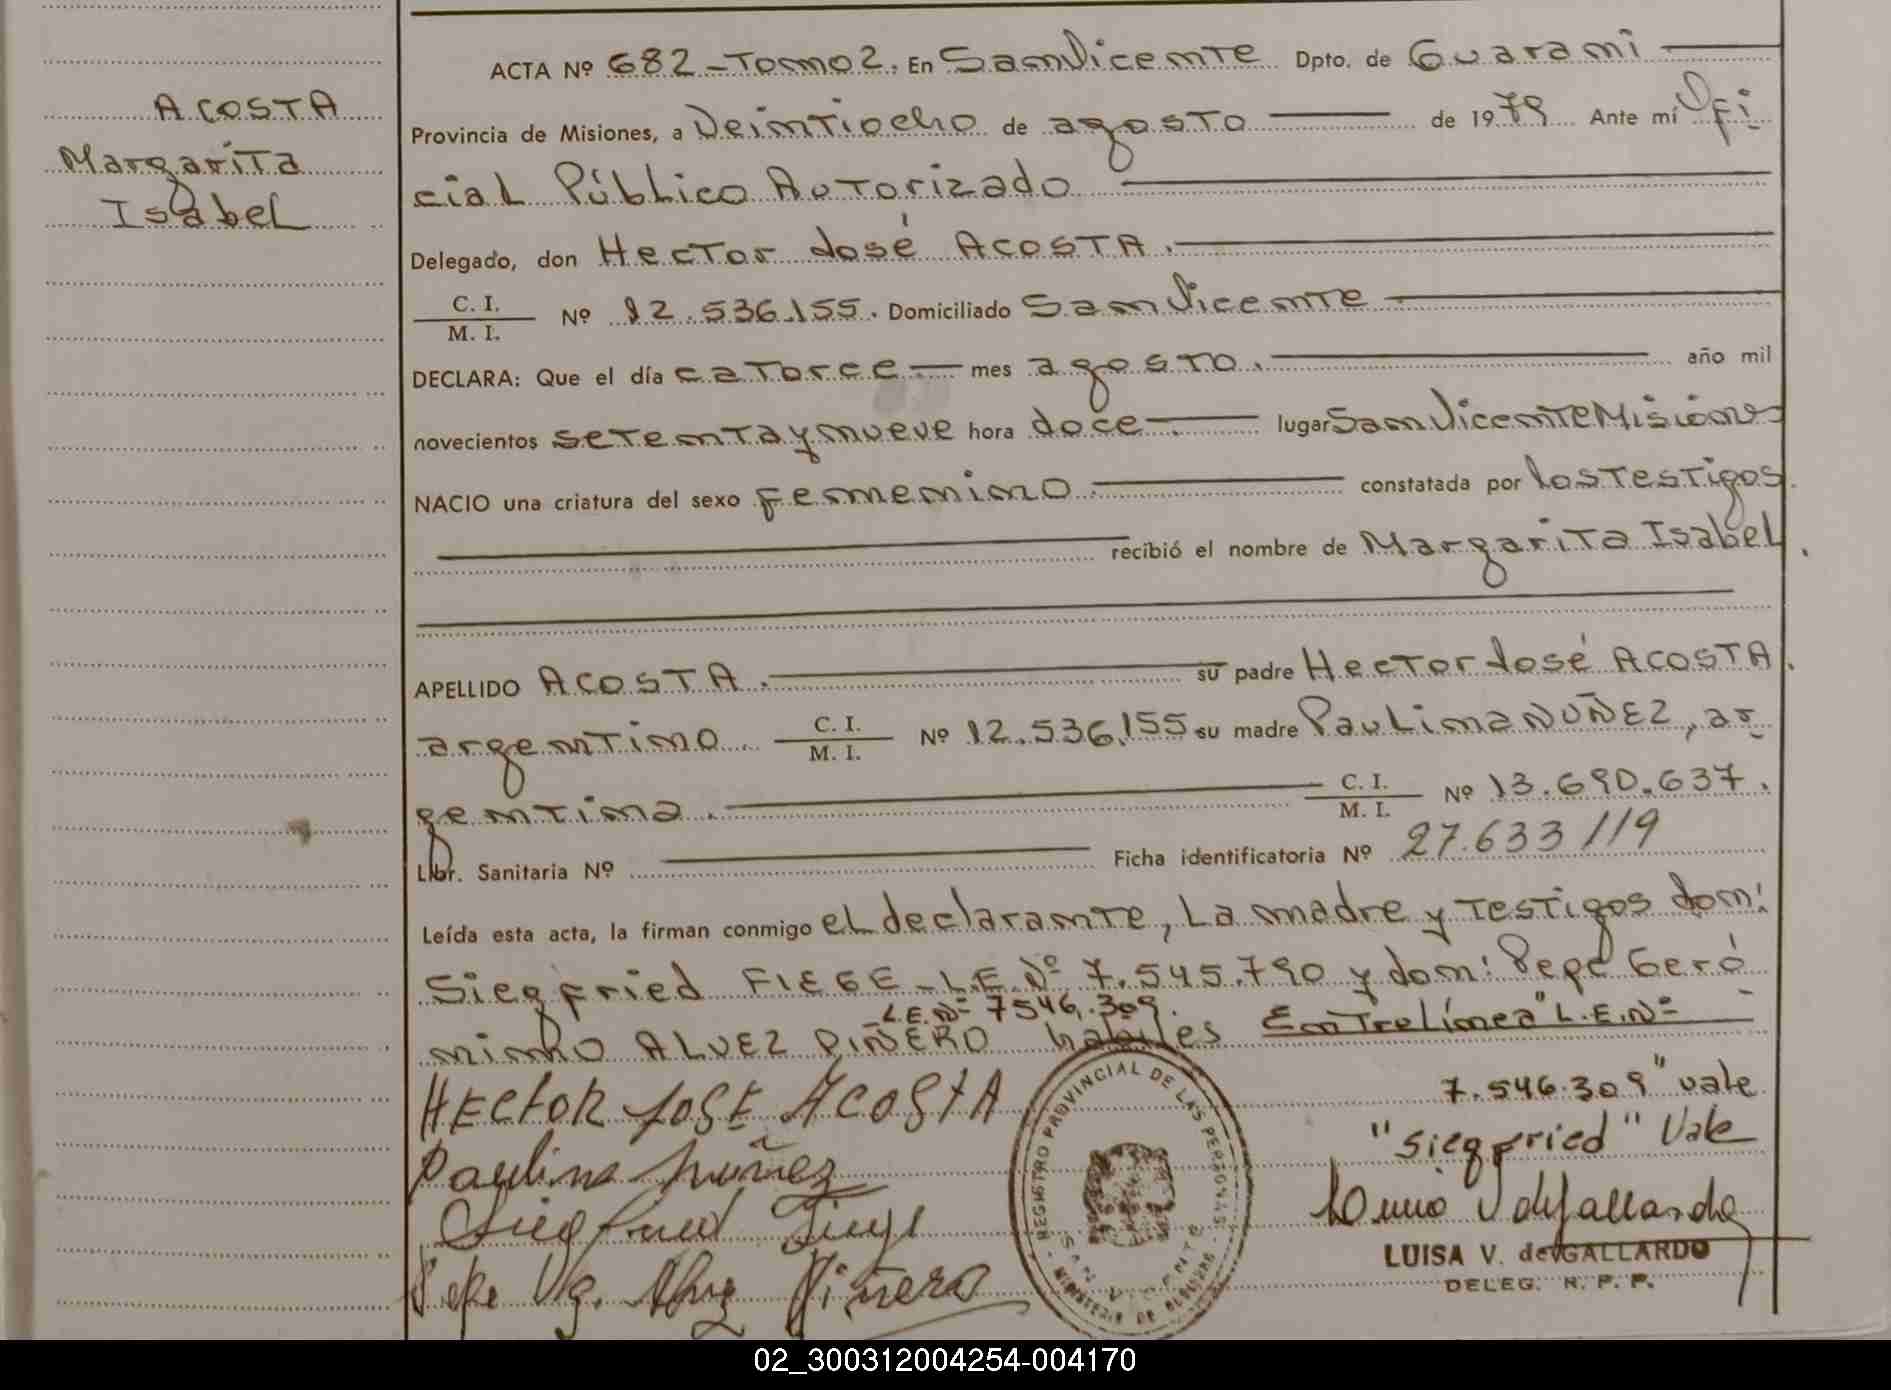 ACOSTA
Margarita
Isabel
ACTA Nº 682-Tomo 2. En San Vicente Dpto. de Guaraní
Provincia de Misiones, a Veintiocho de agosto de 1979 Ante mí Ofi
cial Público Autorizado
Delegado, don Hector José ACOSTA.
C. I.
M. I. Nº 12.536.155. Domiciliado San Vicente
DECLARA: Que el día catorce mes agosto. año mil
novecientos setenta y nueve hora doce lugar San Vicente Misiones
NACIO una criatura del sexo femenino constatada por los Testigos.
recibió el nombre de Margarita Isabel.
APELLIDO ACOSTA. su padre Hector José ACOSTA.
argentino C. I. M. I. Nº 12.536.155 su madre Paulina NUÑEZ, ar
gentina. C. I. M. I. Nº 13.690.637.
Libr. Sanitaria Nº Ficha identificatoria Nº 27.633119
Leída esta acta, la firman conmigo el declarante, La madre y Testigos don:
Siegfried FIEGE-L.E.Nº 7.545.790 y don: Pepe Geró
L.E.Nº 7546.309.
nimho ALVEZ PIÑERO habiles Entrelínea "L.E.Nº
7.546.309" vale
"Siegfried" Vale
HECTOR JOSE ACOSTA
Paulina Nuñez
Siegfried
Piñero
REGISTRO PROVINCIAL DE LAS PERSONAS
SAN VICENTE
MINISTERIO DE GOBIERNO
LUISA V. de GALLARDO
DELEG. R. P. P.
02_300312004254-004170